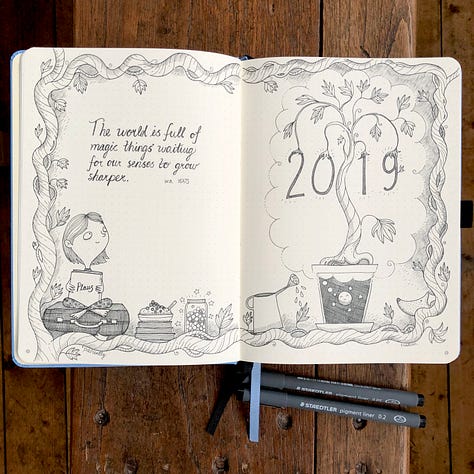 The world is full of
magic things waiting
for our senses to grow
sharper. W.B. YEATS
Plans
2019
STAEDTLER pigment liner
STAEDTLER pigment liner 0.2